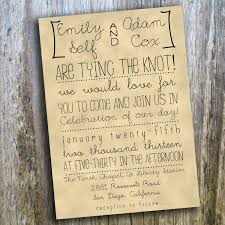 Emily AND Adam
Self Cox
ARE TYING THE KNOT!
we would love for
YOU TO COME AND JOIN US IN
Celebration of our day!
january twenty-fifth
two thousand thirteen
AT FIVE-THIRTY IN THE AFTERNOON
The North Chapel @ Liberty Station
2881 Roosevelt Road
San Diego, California
RECEPTION TO FOLLOW